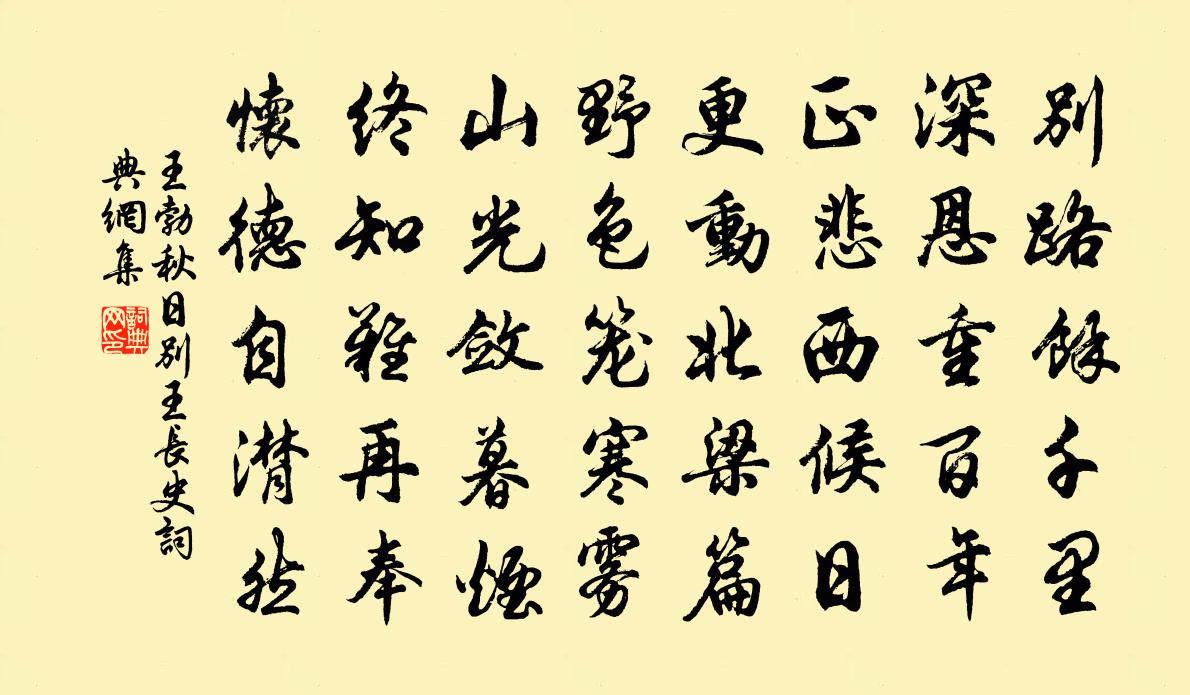 別路餘千里
深恩重百年
正悲西候日
更動北梁篇
野色籠寒雾
山光斂暮煙
終知難再奉
懷德自潸然
王勃秋日別王長史詞
典網集
詞典
网印